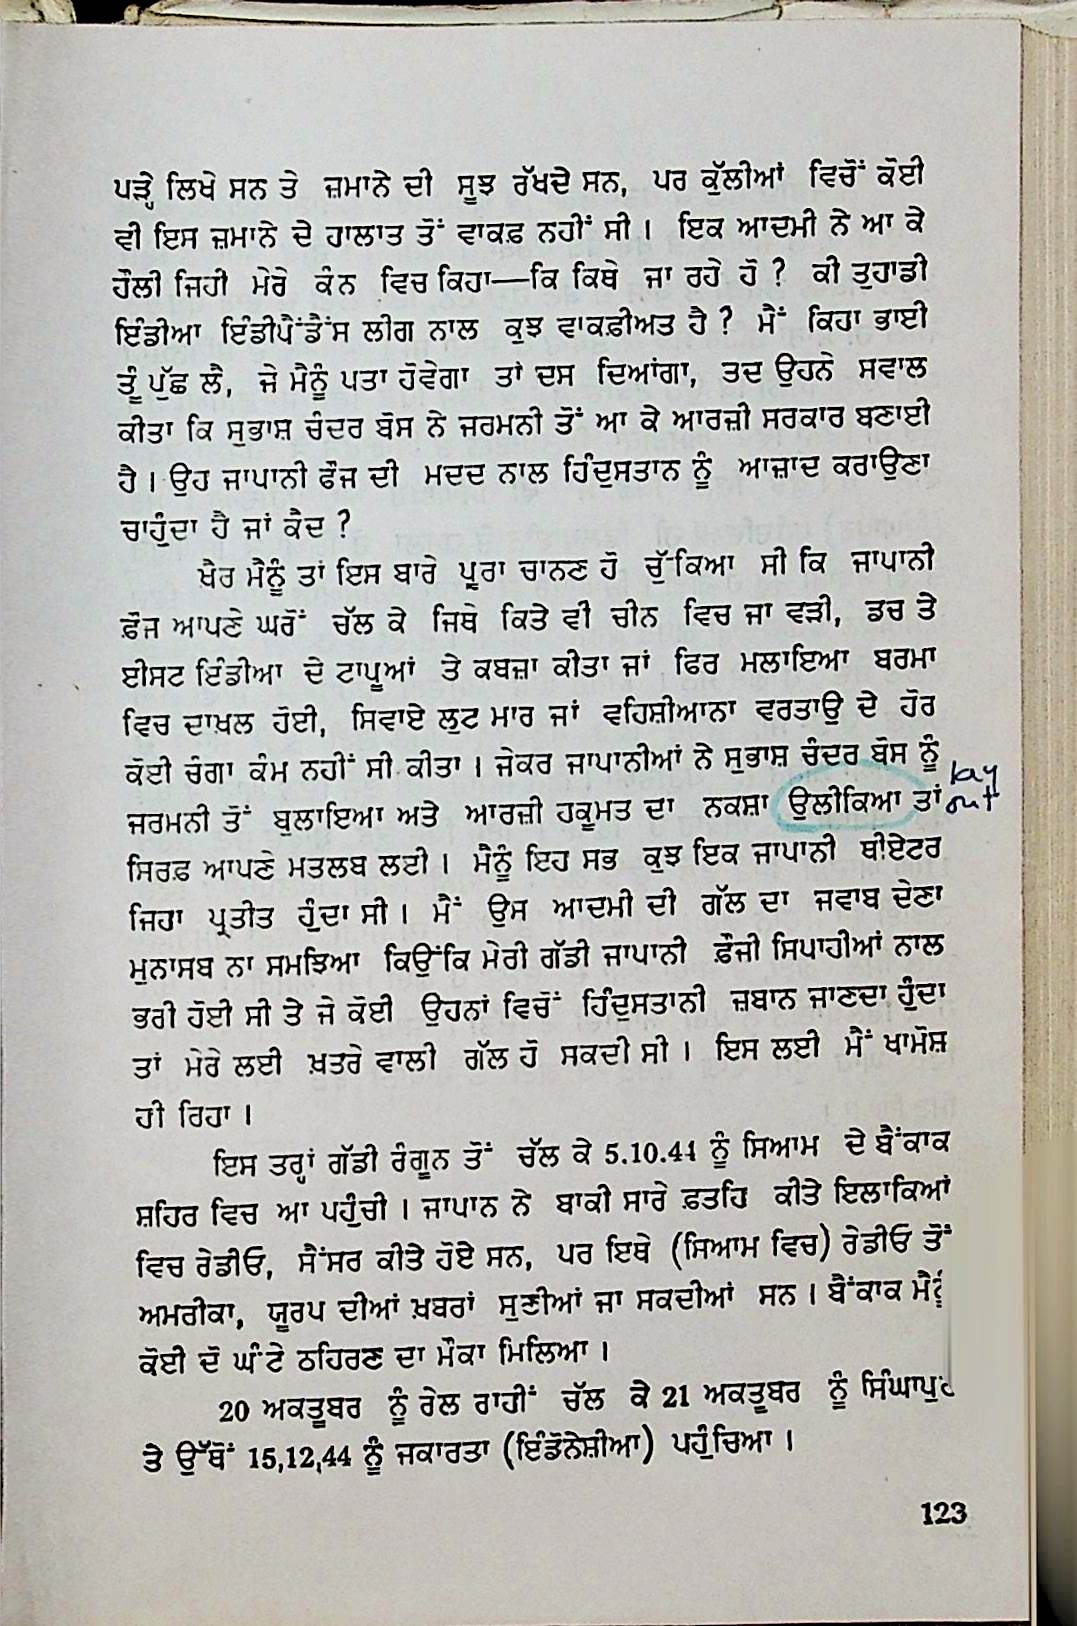 ਪੜ੍ਹੇ ਲਿਖੇ ਸਨ ਤੇ ਜ਼ਮਾਨੇ ਦੀ ਸੂਝ ਰੱਖਦੇ ਸਨ, ਪਰ ਕੁੱਲੀਆਂ ਵਿਚੋਂ ਕੋਈ
ਵੀ ਇਸ ਜ਼ਮਾਨੇ ਦੇ ਹਾਲਾਤ ਤੋਂ ਵਾਕਫ਼ ਨਹੀਂ ਸੀ। ਇਕ ਆਦਮੀ ਨੇ ਆ ਕੇ
ਹੌਲੀ ਜਿਹੀ ਮੇਰੇ ਕੰਨ ਵਿਚ ਕਿਹਾ—ਕਿ ਕਿਥੇ ਜਾ ਰਹੇ ਹੋ ? ਕੀ ਤੁਹਾਡੀ
ਇੰਡੀਆ ਇੰਡੀਪੈਂਡੈਂਸ ਲੀਗ ਨਾਲ ਕੁਝ ਵਾਕਫ਼ੀਅਤ ਹੈ ? ਮੈਂ ਕਿਹਾ ਭਾਈ
ਤੂੰ ਪੁੱਛ ਲੈ, ਜੇ ਮੈਨੂੰ ਪਤਾ ਹੋਵੇਗਾ ਤਾਂ ਦਸ ਦਿਆਂਗਾ, ਤਦ ਉਹਨੇ ਸਵਾਲ
ਕੀਤਾ ਕਿ ਸੁਭਾਸ਼ ਚੰਦਰ ਬੋਸ ਨੇ ਜਰਮਨੀ ਤੋਂ ਆ ਕੇ ਆਰਜ਼ੀ ਸਰਕਾਰ ਬਣਾਈ
ਹੈ। ਉਹ ਜਾਪਾਨੀ ਫੌਜ ਦੀ ਮਦਦ ਨਾਲ ਹਿੰਦੁਸਤਾਨ ਨੂੰ ਆਜ਼ਾਦ ਕਰਾਉਣਾ
ਚਾਹੁੰਦਾ ਹੈ ਜਾਂ ਕੈਦ ?
ਖੈਰ ਮੈਨੂੰ ਤਾਂ ਇਸ ਬਾਰੇ ਪੂਰਾ ਚਾਨਣ ਹੋ ਚੁੱਕਿਆ ਸੀ ਕਿ ਜਾਪਾਨੀ
ਫ਼ੌਜ ਆਪਣੇ ਘਰੋਂ ਚੱਲ ਕੇ ਜਿਥੇ ਕਿਤੇ ਵੀ ਚੀਨ ਵਿਚ ਜਾ ਵੜੀ, ਡਚ ਤੇ
ਈਸਟ ਇੰਡੀਆ ਦੇ ਟਾਪੂਆਂ ਤੇ ਕਬਜ਼ਾ ਕੀਤਾ ਜਾਂ ਫਿਰ ਮਲਾਇਆ ਬਰਮਾ
ਵਿਚ ਦਾਖ਼ਲ ਹੋਈ, ਸਿਵਾਏ ਲੁਟ ਮਾਰ ਜਾਂ ਵਹਿਸ਼ੀਆਨਾ ਵਰਤਾਉ ਦੇ ਹੋਰ
ਕੋਈ ਚੰਗਾ ਕੰਮ ਨਹੀਂ ਸੀ ਕੀਤਾ। ਜੇਕਰ ਜਾਪਾਨੀਆਂ ਨੇ ਸੁਭਾਸ਼ ਚੰਦਰ ਬੋਸ ਨੂੰ
ਜਰਮਨੀ ਤੋਂ ਬੁਲਾਇਆ ਅਤੇ ਆਰਜ਼ੀ ਹਕੂਮਤ ਦਾ ਨਕਸ਼ਾ ਉਲੀਕਿਆ ਤਾਂ
lay
out
ਸਿਰਫ਼ ਆਪਣੇ ਮਤਲਬ ਲਈ। ਮੈਨੂੰ ਇਹ ਸਭ ਕੁਝ ਇਕ ਜਾਪਾਨੀ ਥੀਏਟਰ
ਜਿਹਾ ਪ੍ਰਤੀਤ ਹੁੰਦਾ ਸੀ। ਮੈਂ ਉਸ ਆਦਮੀ ਦੀ ਗੱਲ ਦਾ ਜਵਾਬ ਦੇਣਾ
ਮੁਨਾਸਬ ਨਾ ਸਮਝਿਆ ਕਿਉਂਕਿ ਮੇਰੀ ਗੱਡੀ ਜਾਪਾਨੀ ਫ਼ੌਜੀ ਸਿਪਾਹੀਆਂ ਨਾਲ
ਭਰੀ ਹੋਈ ਸੀ ਤੇ ਜੇ ਕੋਈ ਉਹਨਾਂ ਵਿਚੋਂ ਹਿੰਦੁਸਤਾਨੀ ਜ਼ਬਾਨ ਜਾਣਦਾ ਹੁੰਦਾ
ਤਾਂ ਮੇਰੇ ਲਈ ਖ਼ਤਰੇ ਵਾਲੀ ਗੱਲ ਹੋ ਸਕਦੀ ਸੀ। ਇਸ ਲਈ ਮੈਂ ਖਾਮੋਸ਼
ਹੀ ਰਿਹਾ।
ਇਸ ਤਰ੍ਹਾਂ ਗੱਡੀ ਰੰਗੂਨ ਤੋਂ ਚੱਲ ਕੇ 5.10.44 ਨੂੰ ਸਿਆਮ ਦੇ ਬੈਂਕਾਕ
ਸ਼ਹਿਰ ਵਿਚ ਆ ਪਹੁੰਚੀ। ਜਾਪਾਨ ਨੇ ਬਾਕੀ ਸਾਰੇ ਫ਼ਤਹਿ ਕੀਤੇ ਇਲਾਕਿਆਂ
ਵਿਚ ਰੇਡੀਓ, ਸੈਂਸਰ ਕੀਤੇ ਹੋਏ ਸਨ, ਪਰ ਇਥੇ (ਸਿਆਮ ਵਿਚ) ਰੇਡੀਓ ਤੋਂ
ਅਮਰੀਕਾ, ਯੂਰਪ ਦੀਆਂ ਖ਼ਬਰਾਂ ਸੁਣੀਆਂ ਜਾ ਸਕਦੀਆਂ ਸਨ। ਬੈਂਕਾਕ ਮੈਨੂੰ
ਕੋਈ ਦੋ ਘੰਟੇ ਠਹਿਰਣ ਦਾ ਮੌਕਾ ਮਿਲਿਆ।
20 ਅਕਤੂਬਰ ਨੂੰ ਰੇਲ ਰਾਹੀਂ ਚੱਲ ਕੇ 21 ਅਕਤੂਬਰ ਨੂੰ ਸਿੰਘਾਪੁਰ
ਤੇ ਉੱਥੋਂ 15,12,44 ਨੂੰ ਜਕਾਰਤਾ (ਇੰਡੋਨੇਸ਼ੀਆ) ਪਹੁੰਚਿਆ।
123